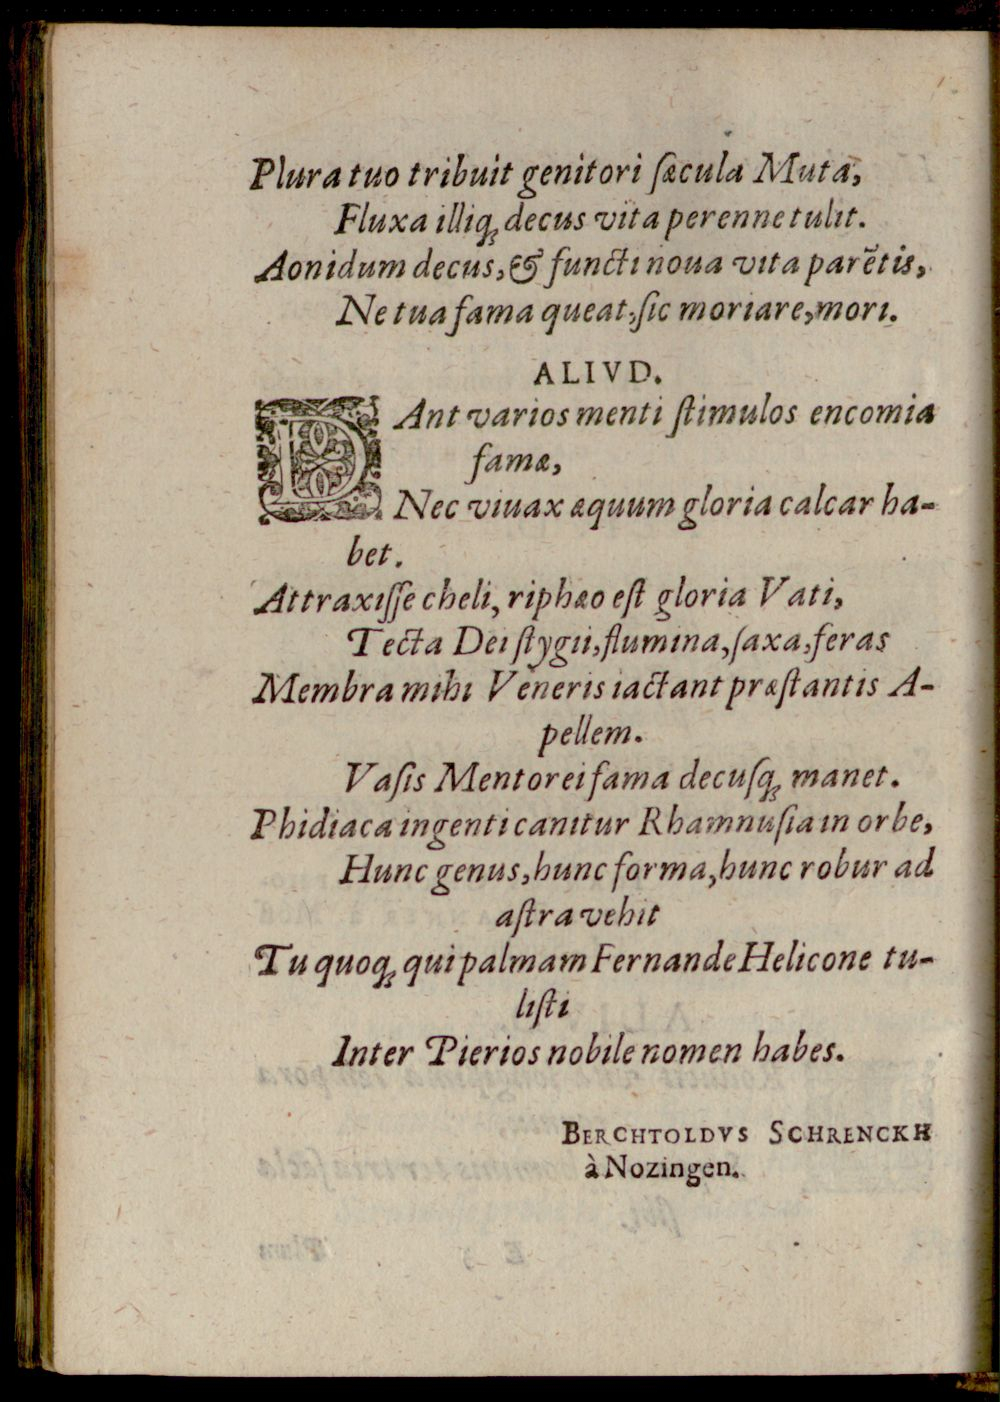 Plura tuo tribuit genitori ſæcula Muta,
Fluxa illiq́ꝫ decus vita perenne tulit.
Aonidum decus, & functi noua vita parẽtis,
Ne tua fama queat, ſic moriare, mori.
ALIVD.
DAnt varios menti ſtimulos encomia
famæ,
Nec viuax æquum gloria calcar ha-
bet.
Attraxiſſe cheli, riphæo eſt gloria Vati,
Tecta Dei ſtygii, flumina, ſaxa, feras
Membra mihi Veneris iactant præſtantis A-
pellem.
Vaſis Mentorei fama decuſqꝫ manet.
Phidiaca ingenti canitur Rhamnuſia in orbe,
Hunc genus, hunc forma, hunc robur ad
aſtra vehit
Tu quoqꝫ qui palmam Fernande Helicone tu-
liſti
Inter Pierios nobile nomen habes.
BERCHTOLDVS SCHRENCKH
à Nozingen.